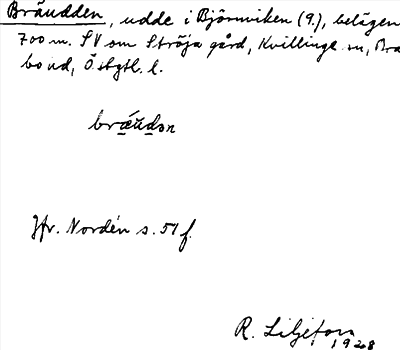 Bräudden, udde i Björnviken (9.), belägen
700 m. SV om Ströja gård, Kvillinge sn, Bra
bo hd, Östgtl. l.
bräudən
Jfr. Nordén s. 51 f.
R. Liljefors
1928